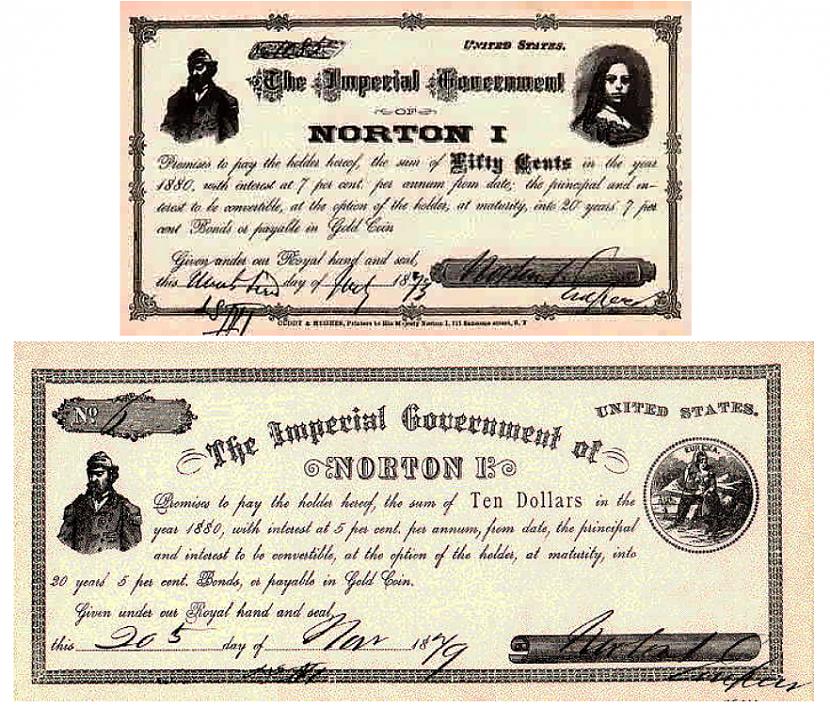 UNITED STATES.
The Imperial Government
OF
NORTON I
Promises to pay the holder hereof, the sum of Fifty Cents in the year
1880, with interest at 7 per cent. per annum from date; the principal and in-
terest to be convertible, at the option of the holder, at maturity, into 20 years' 7 per
cent Bonds or payable in Gold Coin
Given under our Royal hand and seal,
this day of July 1873
Norton I
Emperor
CUDDY & HUGHES, Printers to His Majesty Norton I, 511 Sansome street, S. F
No 6
UNITED STATES.
The Imperial Government of
NORTON I.
Promises to pay the holder hereof, the sum of Ten Dollars in the
year 1880, with interest at 5 per cent. per annum, from date, the principal
and interest to be convertible, at the option of the holder, at maturity, into
20 years' 5 per cent. Bonds, or payable in Gold Coin.
EUREKA.
Given under our Royal hand and seal,
this 20 5 day of Nov 1879
Norton I
Emperor